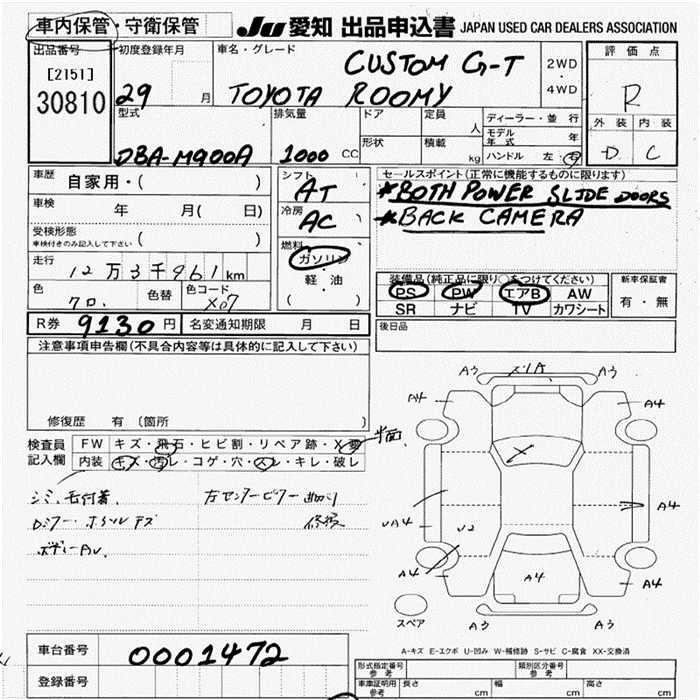 車内保管・守衛保管 JU 愛知 出品申込書 JAPAN USED CAR DEALERS ASSOCIATION
出品番号 [2151] 30810
初度登録年月 29 月
車名・グレード CUSTOM G-T
TOYOTA ROOMY
2WD・4WD
評価点 R
外装 D 内装 C
型式 DBA-M900A
排気量 1000 CC
ドア 形状
定員 人
積載 kg
ディーラー・並行
モデル年式 年
ハンドル 左・右
車歴 自家用・( )
車検 年 月( 日)
受検形態 車検付きのみ記入して下さい ( )
走行 12万3千961km
色 クロ 色替 色コード X07
シフト AT
冷房 AC
燃料 ガソリン
軽・油
( )
セールスポイント(正常に機能するものに限ります)
*BOTH POWER SLIDE DOORS
*BACK CAMERA
装備品(純正品に限り○をつけてください)
PS PW エアB AW
SR ナビ TV カワシート
新車保証書 有・無
後日品
R券 9130円 名変通知期限 月 日
注意事項申告欄(不具合内容等は具体的に記入して下さい)
修復歴 有 〔箇所 〕
検査員記入欄
FW キズ・飛石・ヒビ割・リペア跡・X要
内装 キズ・汚レ・コゲ・穴・スレ・キレ・破レ
シミ、毛付着、
左センターピラー曲がり
修復
Aう Aう
A4 A4
UA4 U2 A4
A4 A4 A4
スペア Aう Aう
A-キズ E-エクボ U-凹み W-補修跡 S-サビ C-腐食 XX-交換済
車台番号 0001472
登録番号
形式指定番号 参考 類別区分番号 参考
車庫証明用 参考 長さ cm 幅 cm 高さ cm